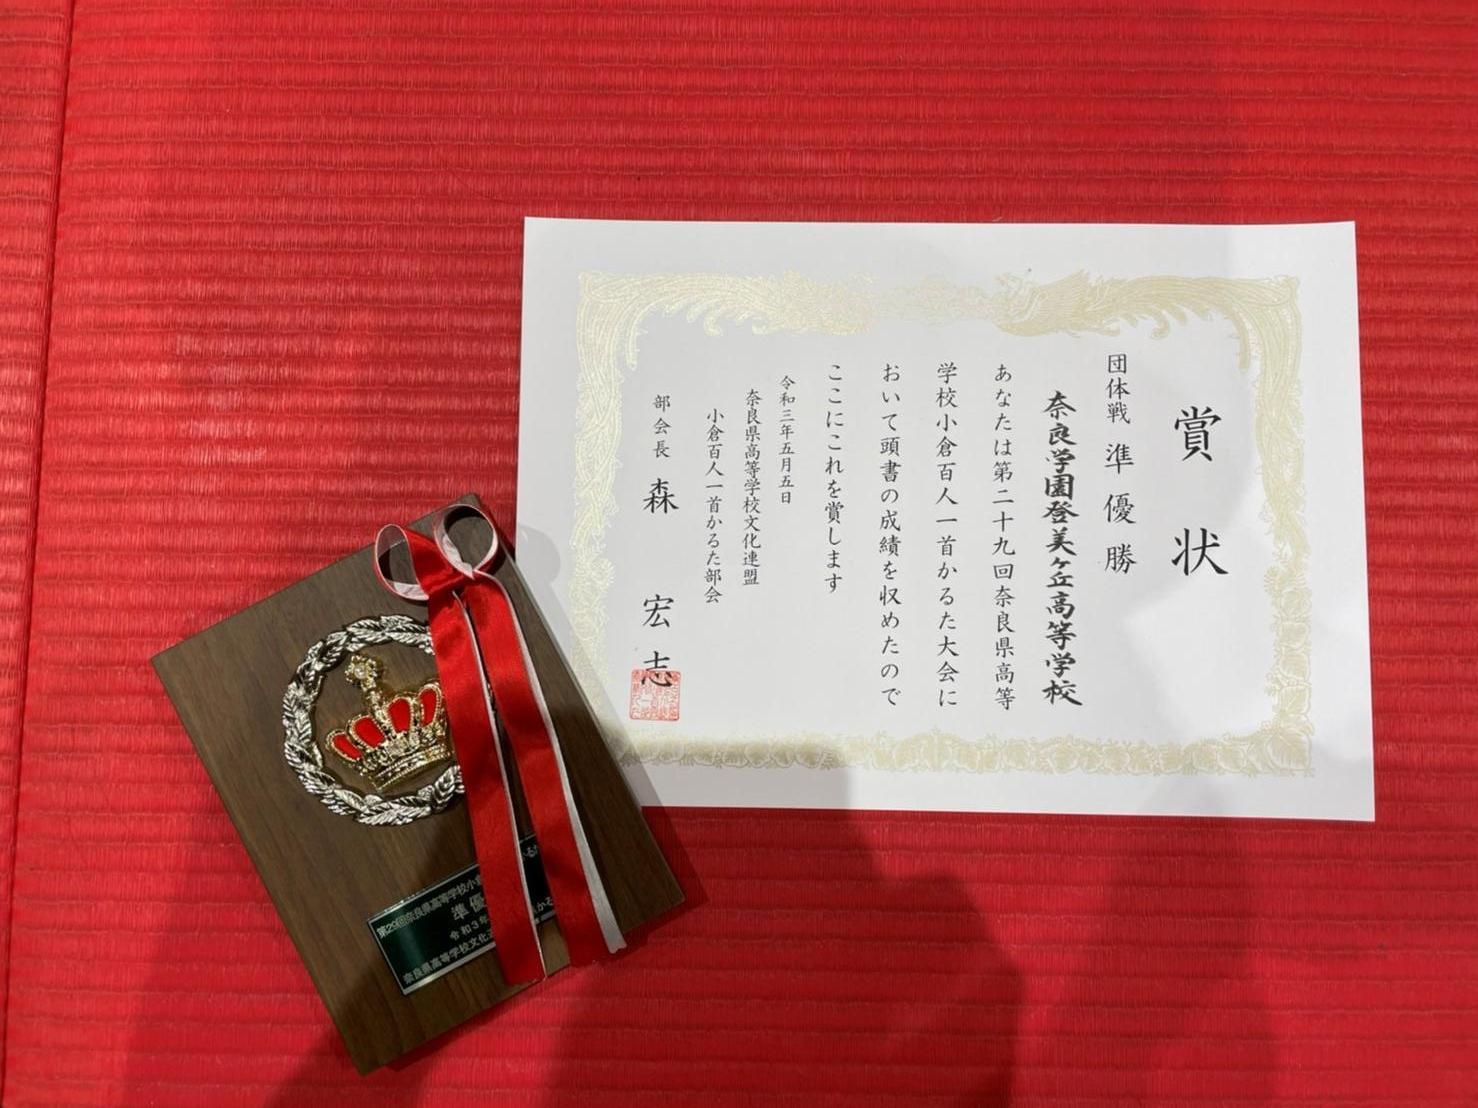 賞状
団体戦 準優勝
奈良学園登美ヶ丘高等学校
あなたは第二十九回奈良県高等
学校小倉百人一首かるた大会に
おいて頭書の成績を収めたので
ここにこれを賞します
令和三年五月五日
奈良県高等学校文化連盟
小倉百人一首かるた部会
部会長 森 宏志
第29回奈良県高等学校小倉
準優
令和3年
奈良県高等学校文化連